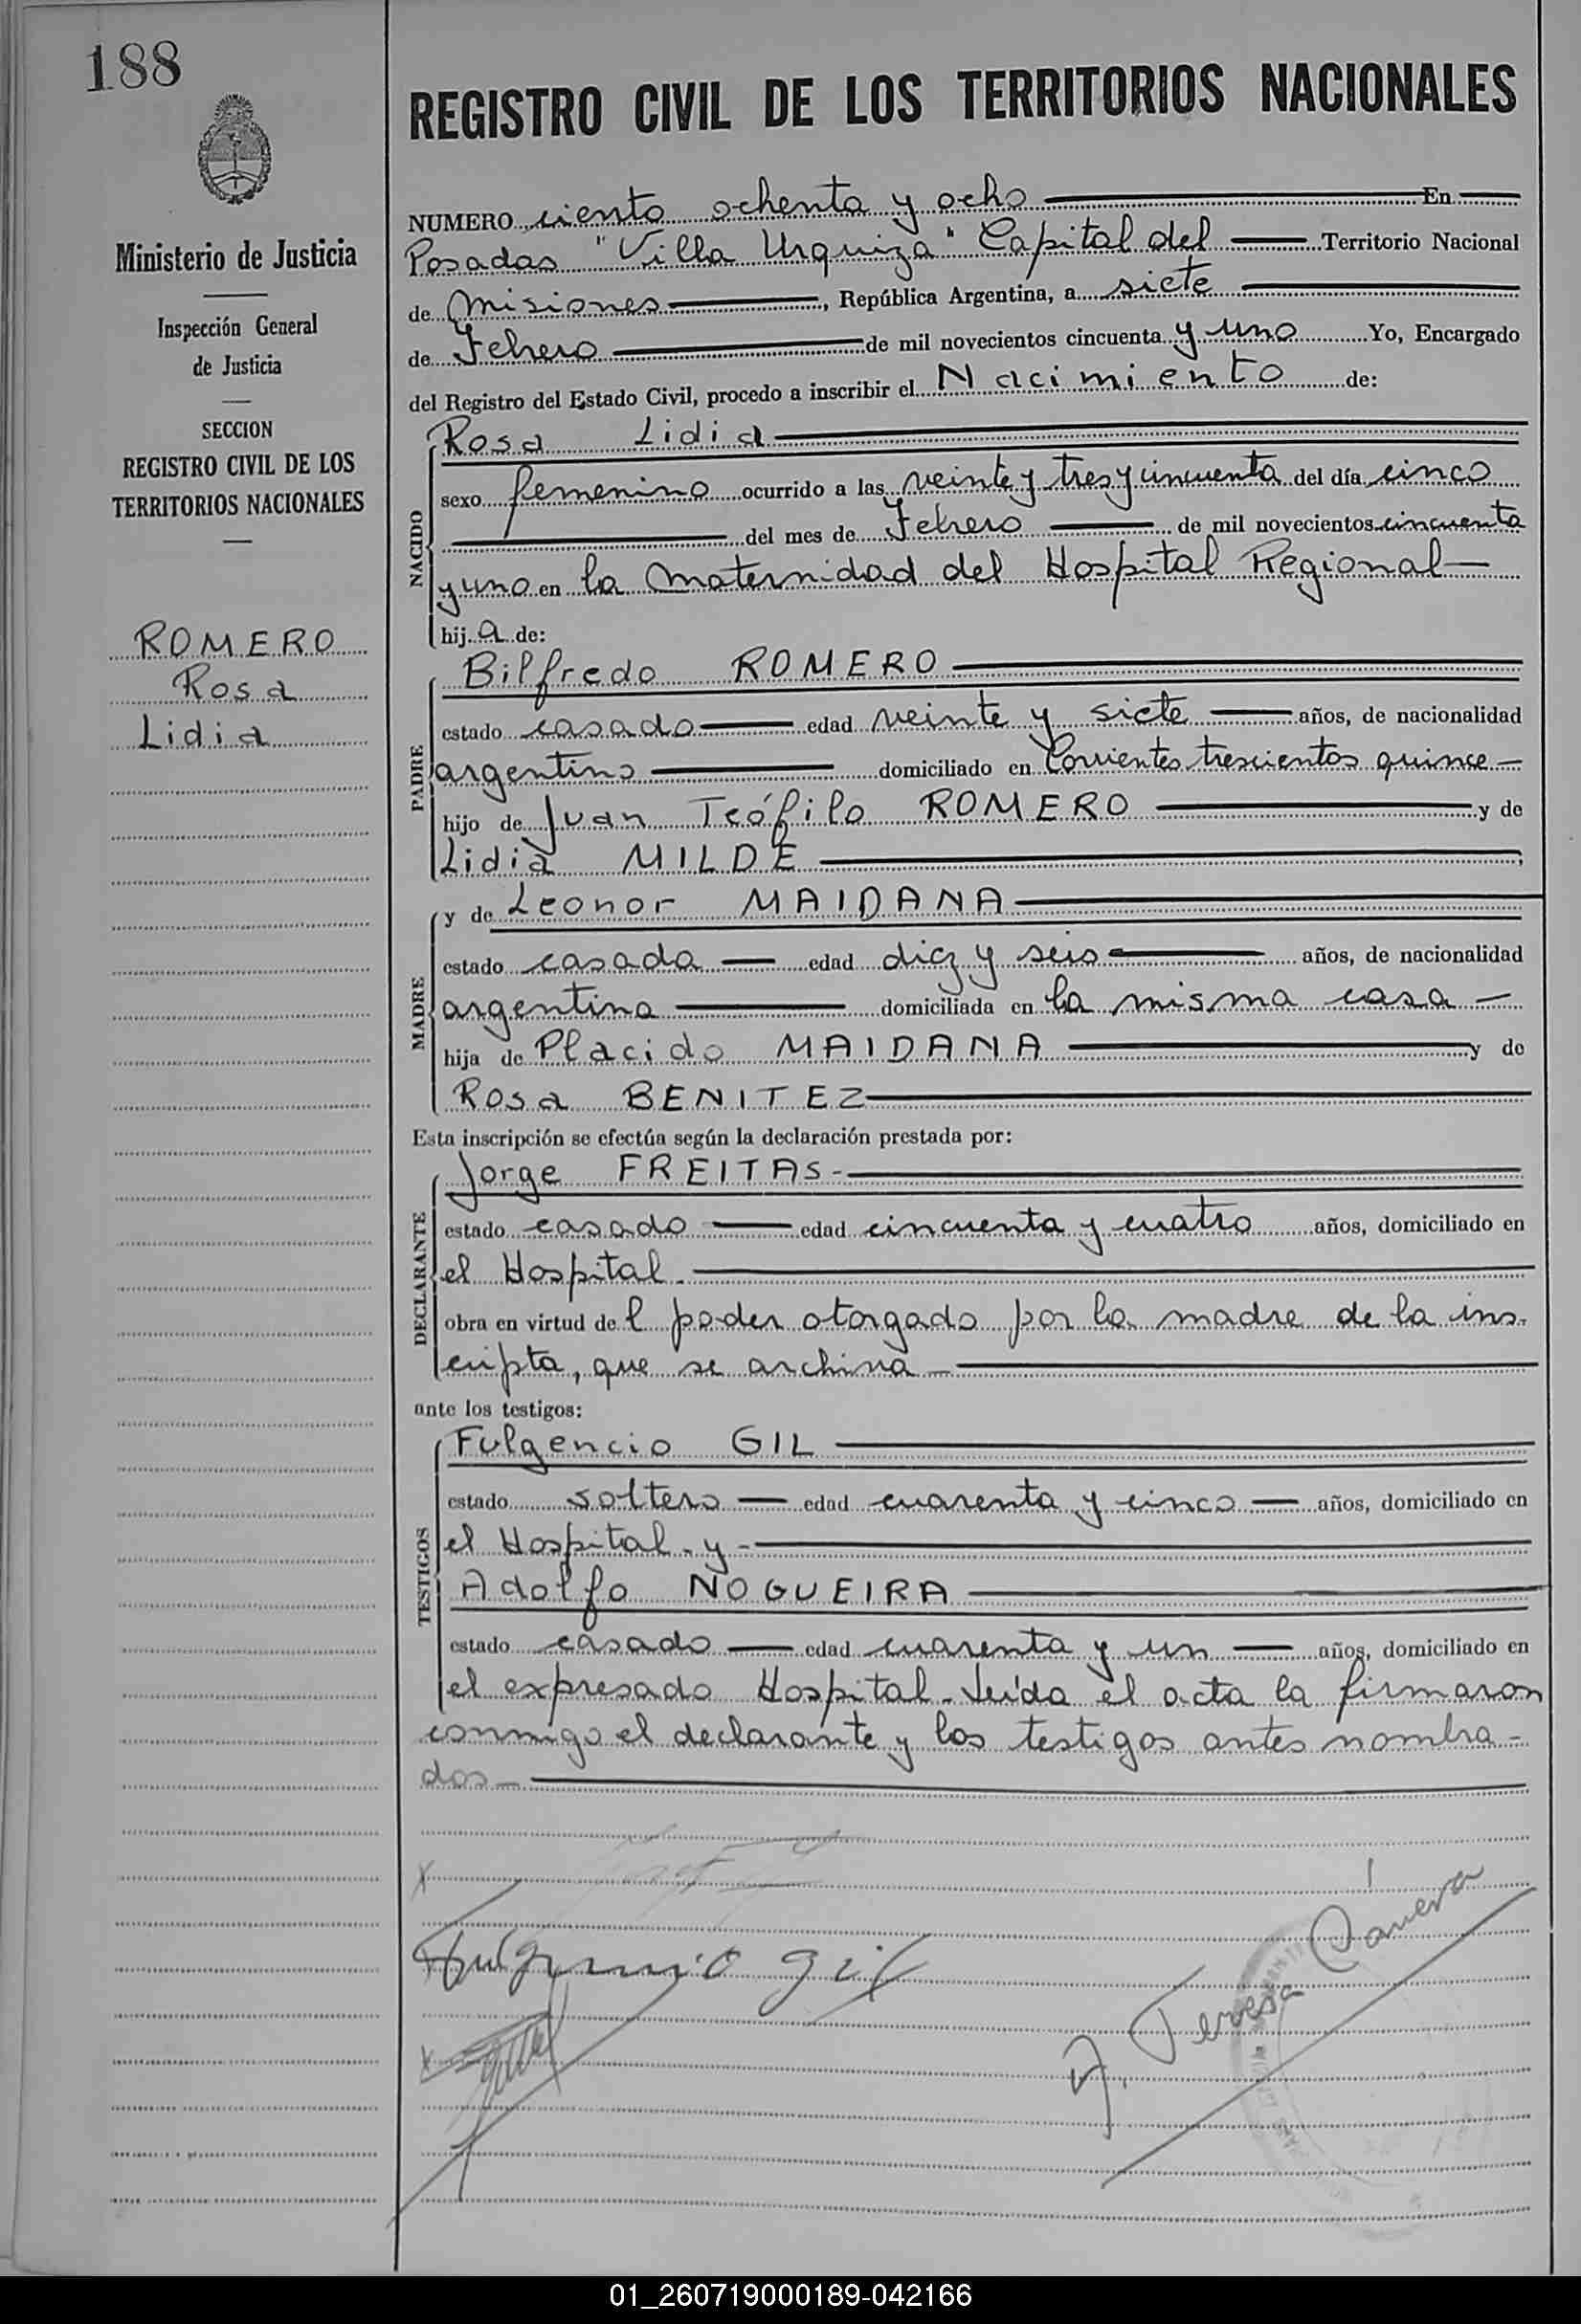 188
Ministerio de Justicia
Inspección General
de Justicia
SECCION
REGISTRO CIVIL DE LOS
TERRITORIOS NACIONALES
ROMERO
Rosa
Lidia
REGISTRO CIVIL DE LOS TERRITORIOS NACIONALES
NUMERO ciento ochenta y ocho En
Posadas "Villa Urquiza" Capital del Territorio Nacional
de Misiones, República Argentina, a siete
de Febrero de mil novecientos cincuenta y uno Yo, Encargado
del Registro del Estado Civil, procedo a inscribir el Nacimiento de:
NACIDO
Rosa Lidia
sexo femenino ocurrido a las veinte y tres y cincuenta del día cinco
del mes de Febrero de mil novecientos cincuenta
y uno en la Maternidad del Hospital Regional
hija de:
PADRE
Bilfredo ROMERO
estado casado edad veinte y siete años, de nacionalidad
argentino domiciliado en Corrientes trescientos quince
hijo de Juan Teófilo ROMERO y de
Lidia MILDE;
MADRE
y de Leonor MAIDANA
estado casada edad diez y seis años, de nacionalidad
argentina domiciliada en la misma casa
hija de Placido MAIDANA y de
Rosa BENITEZ
Esta inscripción se efectúa según la declaración prestada por:
DECLARANTE
Jorge FREITAS
estado casado edad cincuenta y cuatro años, domiciliado en
el Hospital.
obra en virtud del poder otorgado por la madre de la ins-
cripta, que se archiva
ante los testigos:
TESTIGOS
Fulgencio GIL
estado soltero edad cuarenta y cinco años, domiciliado en
el Hospital - y -
Adolfo NOGUEIRA
estado casado edad cuarenta y un años, domiciliado en
el expresado Hospital. Leída el acta la firmaron
conmigo el declarante y los testigos antes nombra-
dos
Fulgencio Gil
A. Teresa
01_260719000189-042166